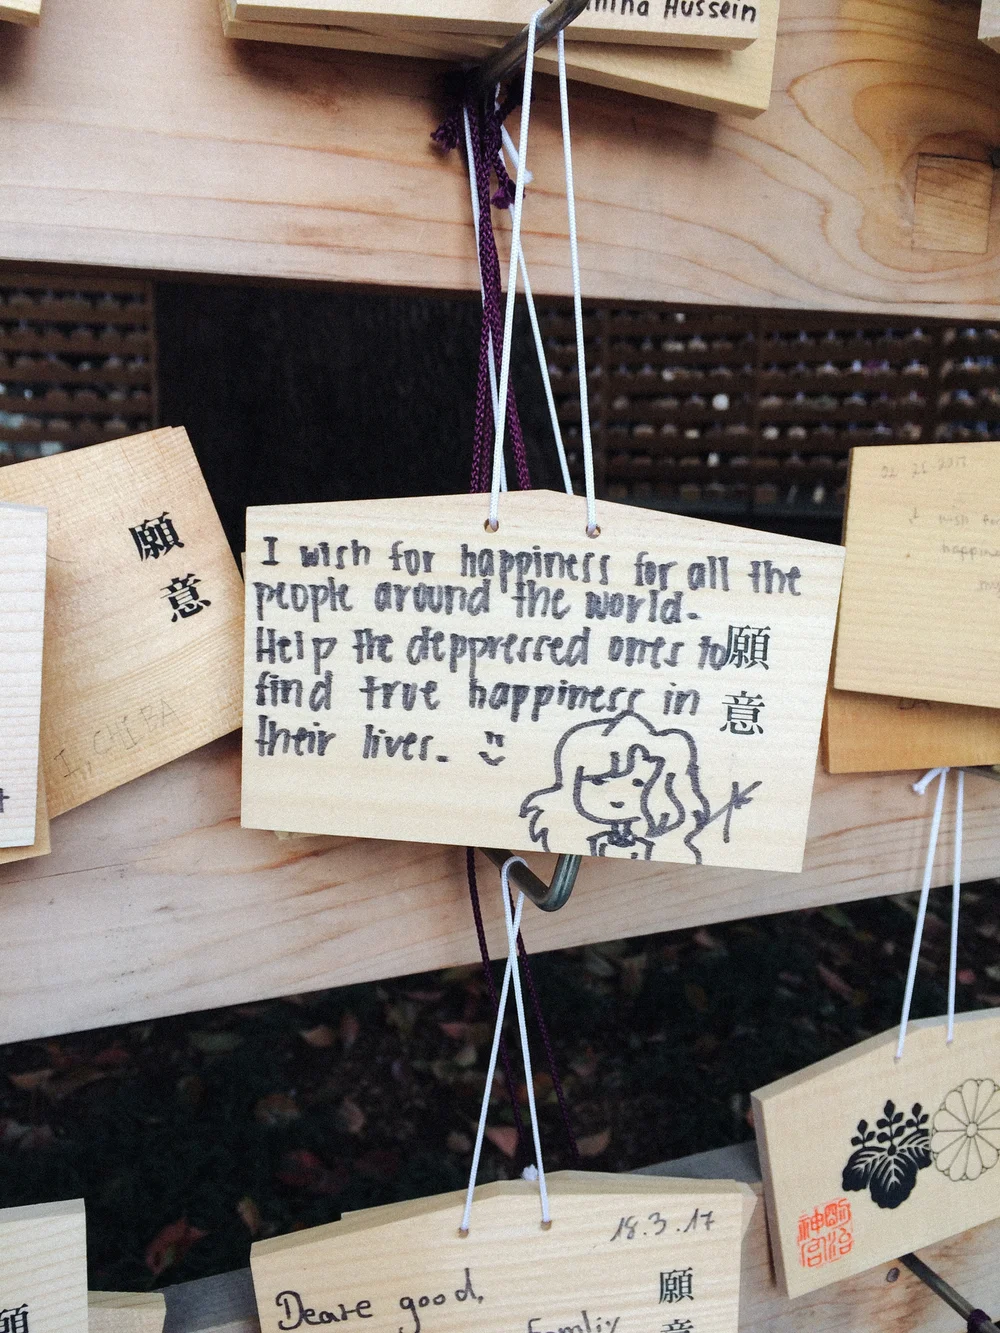 Hussein
願
意
I. CHIBA
I wish for happiness for all the
people around the world.
Help the deppressed ones to
find true happiness in
their lives.
願
意
happine
18.3.17
Deare good,
Familiy
願
意
願
明治
神宮